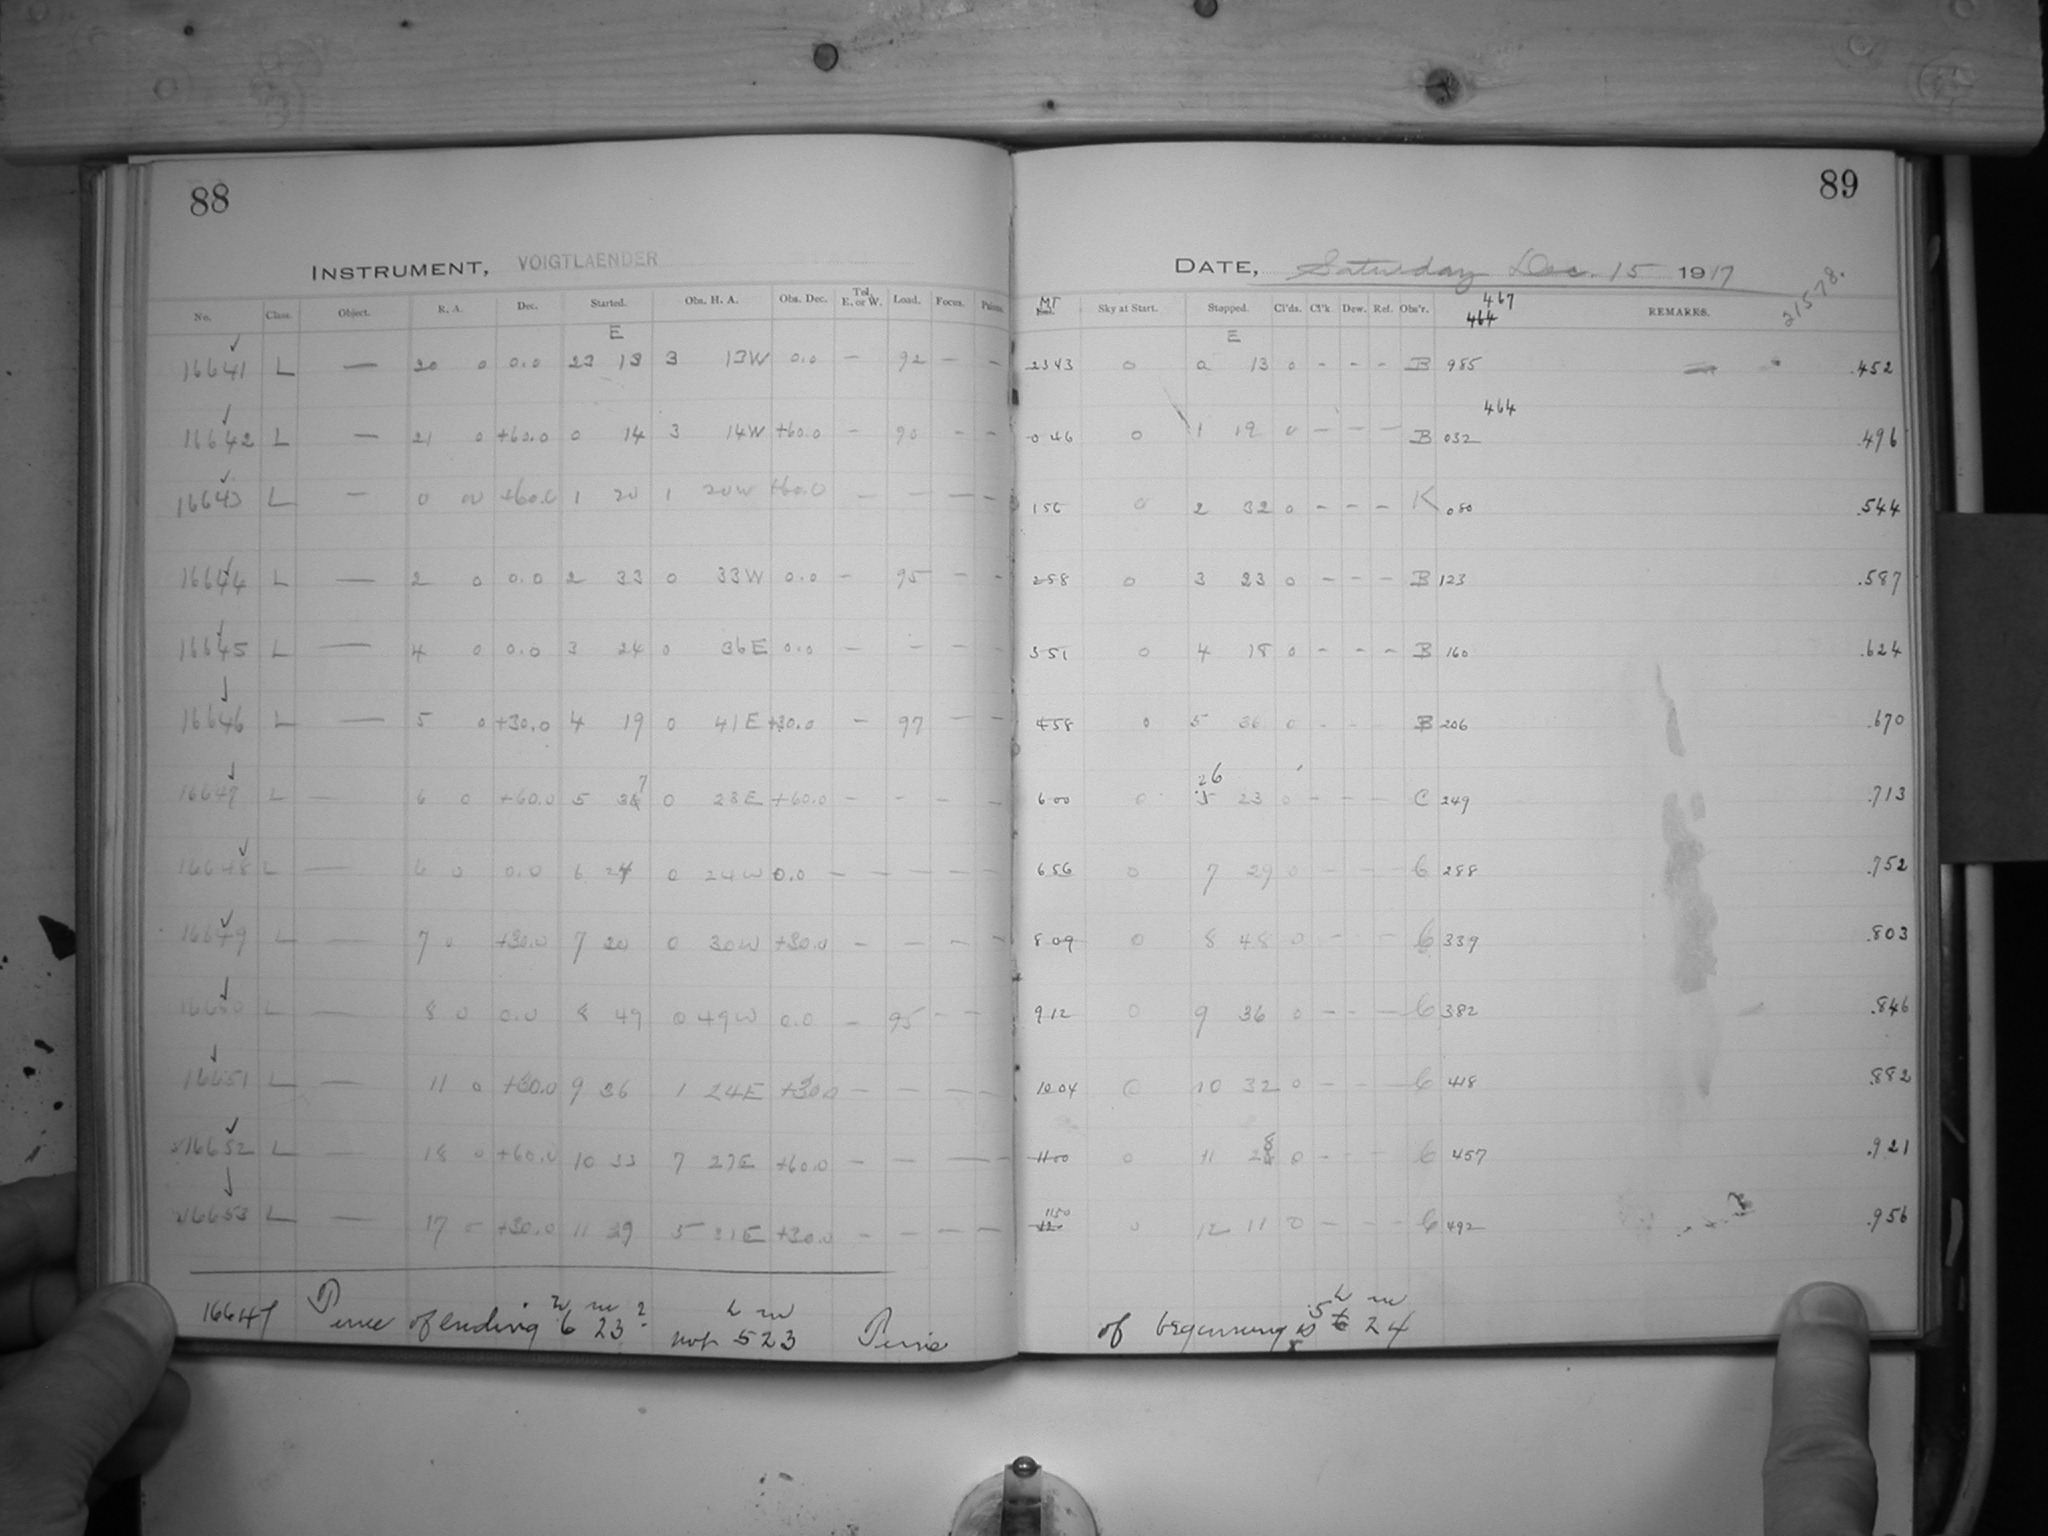 88
INSTRUMENT, VOIGTLAENDER
No. Class. Object. R. A. Dec. Started. Obs. H. A. Obs. Dec. Tel. E. or W. Load. Focus.
E
16641 L — 20 0 0.0 23 13 3 13W 0.0 — 92 — —
16642 L — 21 0 +60.0 0 14 3 14W +60.0 — 90 — —
16643 L — 0 0 +60.0 1 20 1 20W +60.0 — — — —
16644 L — 2 0 0.0 2 33 0 33W 0.0 — 95 — —
16645 L — 4 0 0.0 3 24 0 36E 0.0 — — — —
16646 L — 5 0 +30.0 4 19 0 41E +30.0 — 97 — —
7
16647 L — 6 0 +60.0 5 0 23E +60.0 — — — —
16648 L — 6 0 0.0 6 24 0 24W 0.0 — — — —
16649 L — 7 0 +30.0 7 20 0 30W +30.0 — — — —
16650 L — 8 0 0.0 8 49 0 49W 0.0 — 95 — —
16651 L — 11 0 +30.0 9 36 1 24E +30.0 — — — —
16652 L — 18 0 +60.0 10 33 7 27E +60.0 — — — —
16653 L — 17 0 +30.0 11 29 5 31E +30.0 — — — —
16647 Time of ending 6 h 23 m ? not 5 h 23 m Time
89
DATE, Saturday Dec. 15 1917
21578.
MT Sky at Start. Stopped. Cl'ds. Cl'k Dew. Ref. Obs'r. REMARKS.
467
464
E
2343 0 0 13 0 - - - B 985 .452
464
046 0 1 19 0 - - - B 032 .496
156 0 2 32 0 - - - K 080 .544
258 0 3 23 0 - - - B 123 .587
351 0 4 18 0 - - - B 160 .624
458 0 5 36 0 - - - B 206 .670
6
600 0 5 23 0 - - - C 249 .713
656 0 7 29 0 - - - C 288 .752
809 0 8 48 0 - - - C 339 .803
912 0 9 36 0 - - - C 382 .846
1004 0 10 32 0 - - - C 418 .882
1100 0 11 28 0 - - - C 457 .921
1150
0 12 11 0 - - - C 492 .956
of beginning is 5 h 24 m